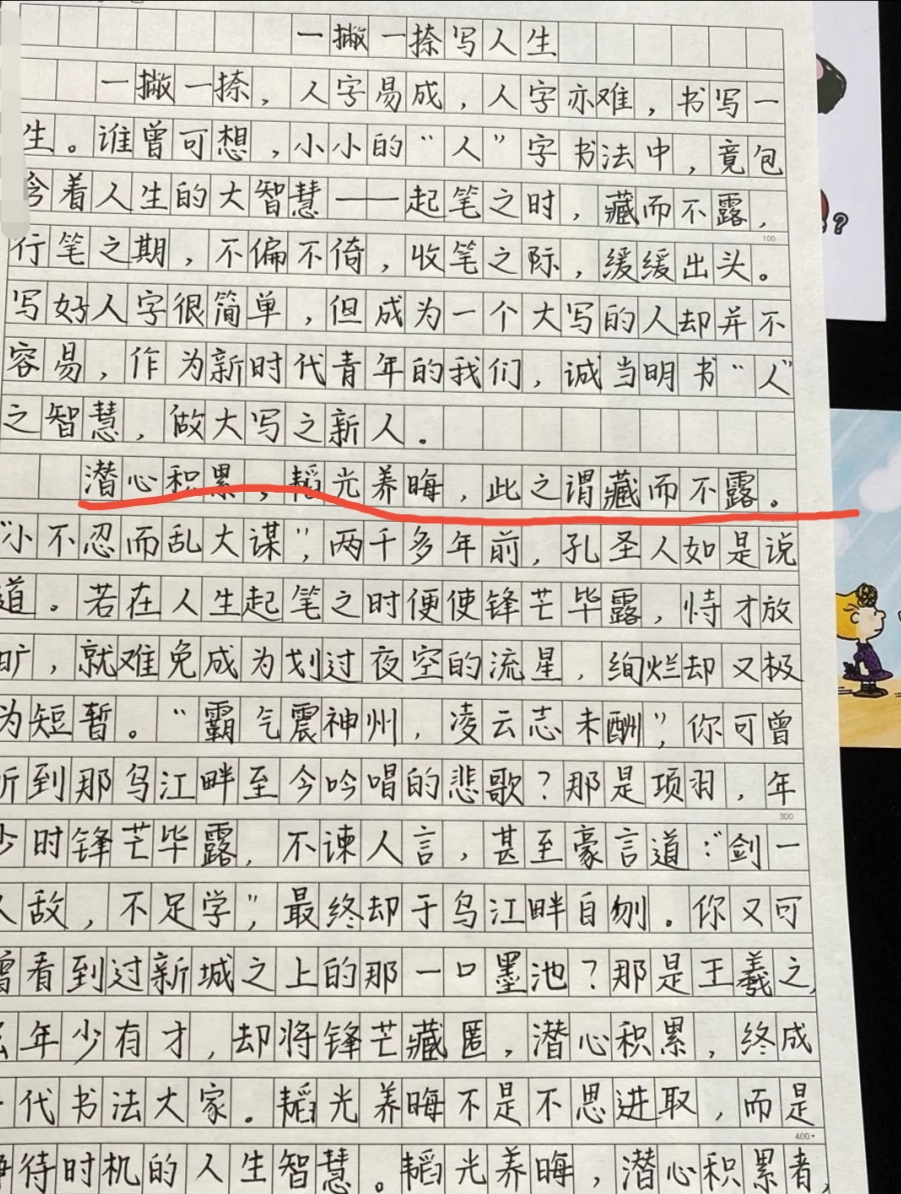 一撇一捺写人生
一撇一捺，人字易成，人字亦难，书写一
生。谁曾可想，小小的“人”字书法中，竟包
含着人生的大智慧——起笔之时，藏而不露，
行笔之期，不偏不倚，收笔之际，缓缓出头。
100
写好人字很简单，但成为一个大写的人却并不
容易，作为新时代青年的我们，诚当明书“人”
之智慧，做大写之新人。
潜心积累，韬光养晦，此之谓藏而不露。
“小不忍而乱大谋”，两千多年前，孔圣人如是说
道。若在人生起笔之时便使锋芒毕露，恃才放
旷，就难免成为划过夜空的流星，绚烂却又极
为短暂。“霸气震神州，凌云志未酬”，你可曾
听到那乌江畔至今吟唱的悲歌？那是项羽，年
300
少时锋芒毕露，不谏人言，甚至豪言道：“剑一
人敌，不足学”，最终却于乌江畔自刎。你又可
曾看到过新城之上的那一口墨池？那是王羲之，
年少有才，却将锋芒藏匿，潜心积累，终成
一代书法大家。韬光养晦不是不思进取，而是
400
静待时机的人生智慧。韬光养晦，潜心积累者，
?